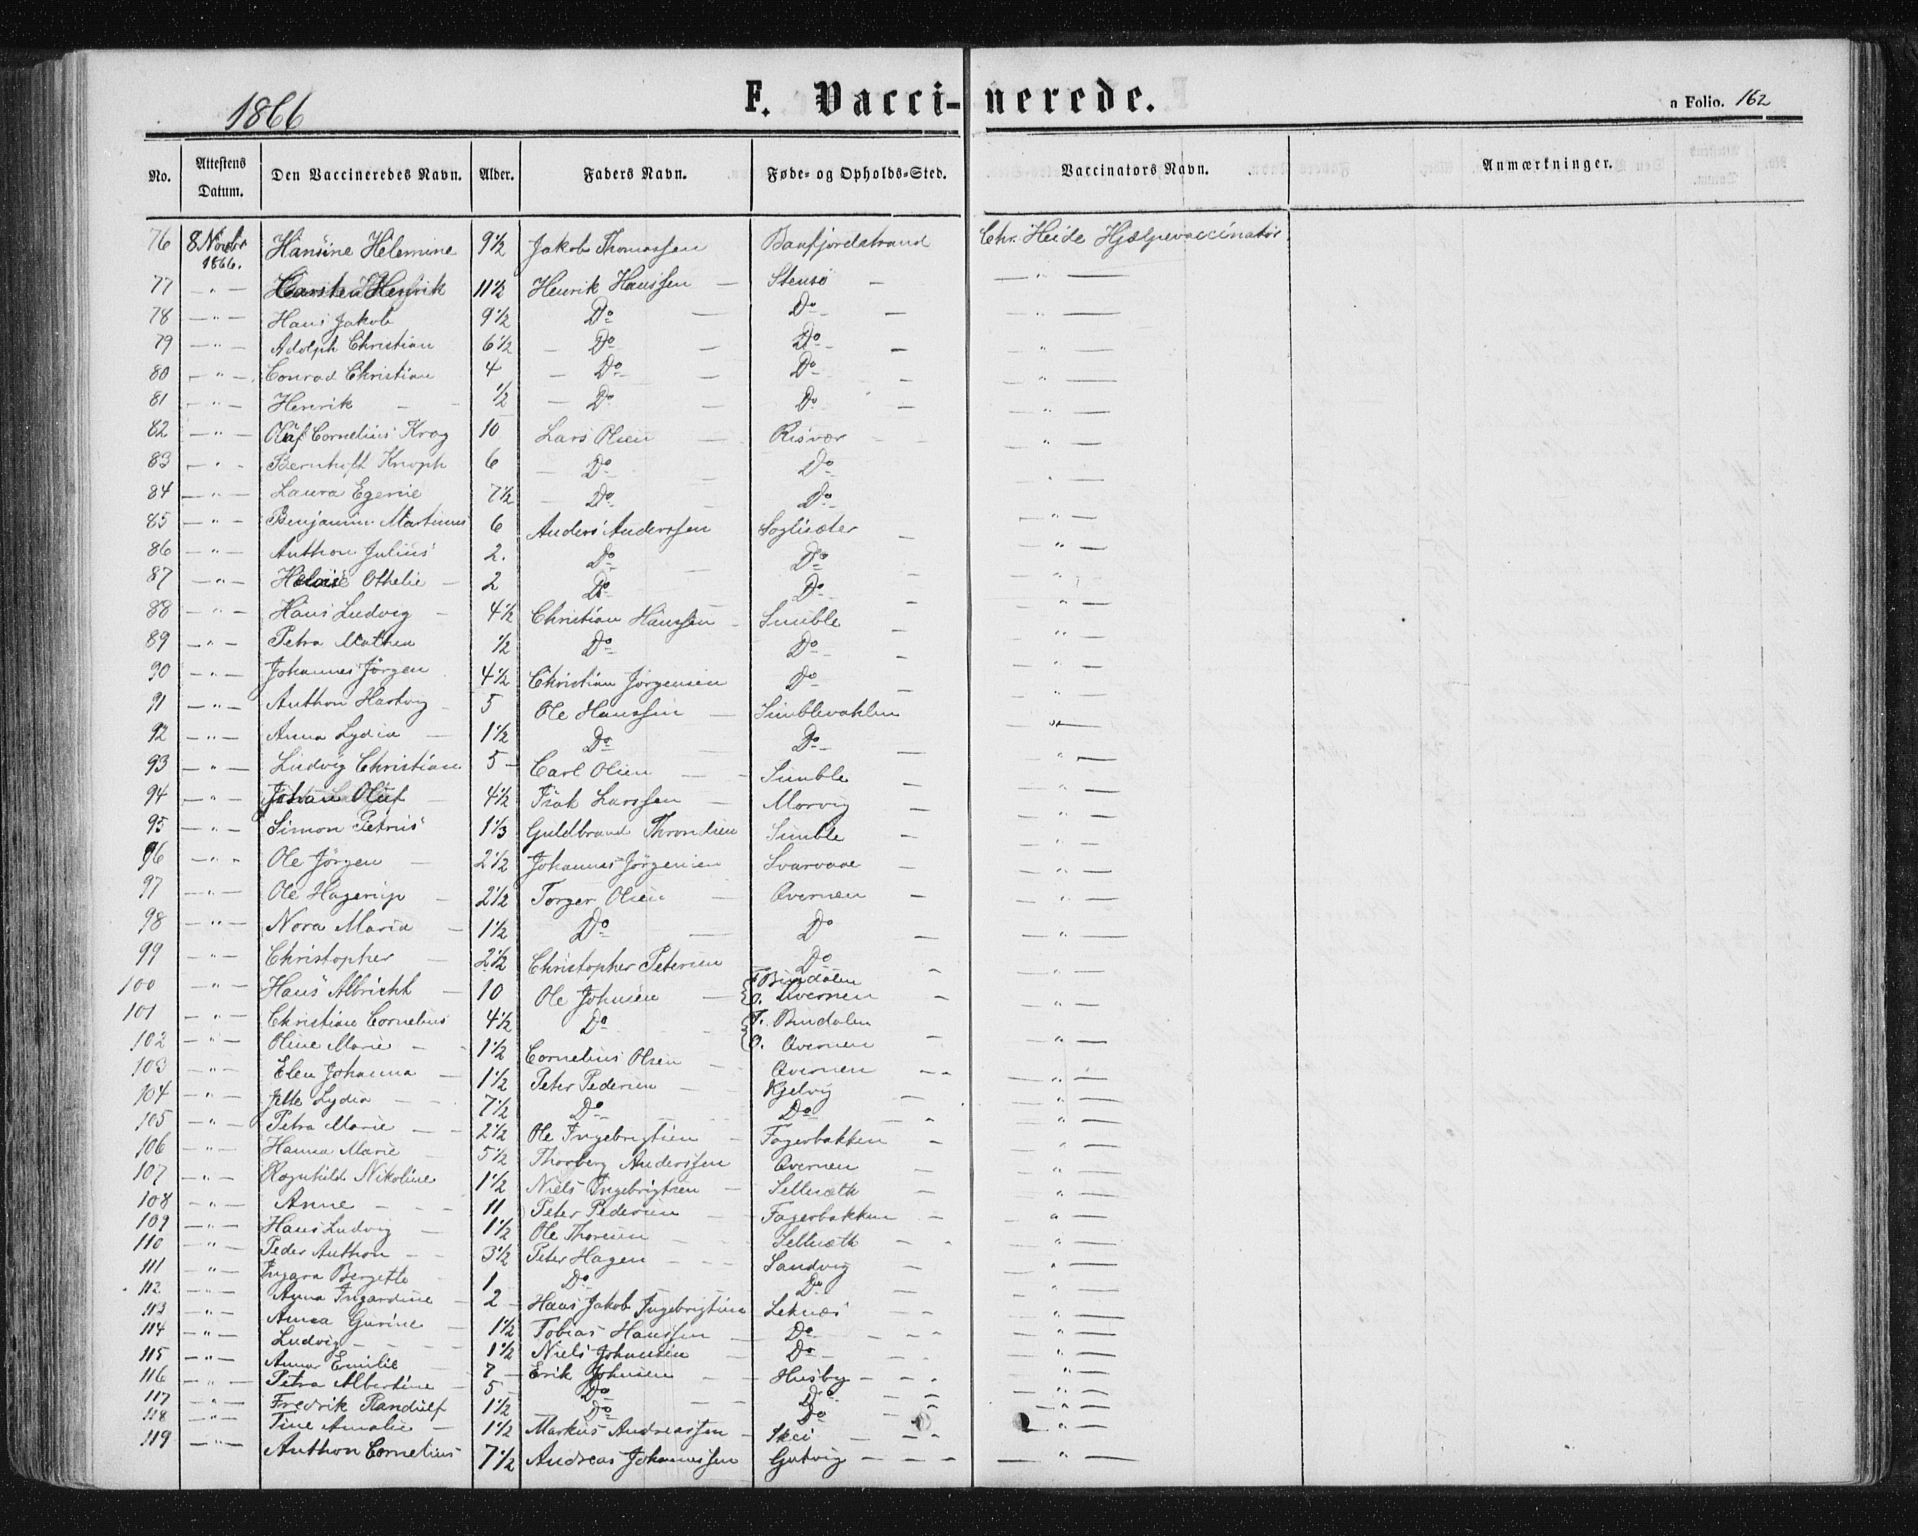 1866
F. Vacci-nerede.
a Folio. 162
No. Attestens Datum. Den Vaccineredes Navn. Alder. Faders Navn. Føde- og Opholds-Sted. Vaccinators Navn. Anmærkninger.
76 8 Novbr 1866. Hansine Helemine 9 1/2 Jakob Thomassen Chr. Heide Hjælpevaccinatør.
77 — " — Carsten Henrik 11 1/2 Henrik Hanssen — Stensø — — " —
78 — " — Hans Jakob 9 1/2 Do — Do — — " —
79 — " — Adolph Christian 6 1/2 — Do — Do — — " —
80 — " — Conrad Christian 4 — Do — Do — — " —
81 — " — Henrik — 1/2 — Do — Do — — " —
82 — " — Olaf Cornelius Krog 10 Lars Olsen — Risvær — — " —
83 — " — Bernhoft Knoph 6 — Do — Do — " —
84 — " — Laura Egerie 7 1/2 — Do — Do — " —
85 — " — Benjamin Martinus 6 Anders Anderssen Soglisæter — — " —
86 — " — Anthon Julius 2. Do — Do — — " —
87 — " — Othelie — 2 Do — Do — — " —
88 — " — Hans Ludvig — 4 1/2 Christian Hanssen — Simble — — " —
89 — " — Petra Mathea 1/2 Do Do — — " —
90 — " — Johannes Jörgen 4 1/2 Christian Jørgensen Do — — " —
91 — " — Anthon Hartvig — 5 Ole Hanssen — — " —
92 — " — Anna Lydia — 1 1/2 Do — Do — — " —
93 — " — Ludvig Christian 5 — Carl Olsen — Simble — — " —
94 — " — Johan Oluf — 4 1/2 Isak Larssen — Morvig — — " —
95 — " — Simon Petrus 1 1/3 Guldbrand Throndsen Simble — — " —
96 — " — Ole Jörgen — 2 1/2 Johannes Jörgensen Svarvaae — — " —
97 — " — Ole Hagerup — 2 1/2 Torger Olsen — Avernen — — " —
98 — " — Nora Maria — 1 1/2 Do — Do — — " —
99 — " — Christopher — 2 1/2 Christopher Petersen Do — — " —
100 — " — Hans Albricht — 10 Ole Johnsen — F. Bindalen O. Avernen — — " —
101 — " — Christian Cornelius 4 1/2 Do F. Bindalen O. Avernen — " —
102 — " — Oline Marie — 1 1/2 Cornelius Olsen — Avernen — — " —
103 — " — Elen Johanna — 1 1/2 Peter Pedersen — Kjelvig — — " —
104 — " — Jette Lydia — 7 1/2 Do Do — — " —
105 — " — Petra Marie — 2 1/2 Ole Ingebrigtsen — Fagerbakken — — " —
106 — " — Hanna Marie — 5 1/2 Thorberg Anderssen Avernen — — " —
107 — " — Ragnhild Nikoline 1 1/2 Niels Ingebrigtsen — Sellnæth — — " —
108 — " — Anne — 11 Peter Pedersen — Fagerbakken — — " —
109 — " — Hans Ludvig — 1 1/2 Ole Thoresen — Sellnæth — — " —
110 — " — Peder Anthon — 3 1/2 Peter Hagen — Sandvig — — " —
111 — " — Bergitte 1 Do Do — " —
112 — " — Anna Ingardine — 2 — Hans Jakob Ingebrigtsen Leknæs — — " —
113 — " — Anna Gurine — 1 1/2 Tobias Hanssen — Do — — " —
114 — " — Ludvig — 1 1/2 Niels Johansen — Do — — " —
115 — " — Anna Emilie — 7 — Erik Johnsen — Husby — — " —
116 — " — Petra Albertine — 5 — Do — Do — — " —
117 — " — Fredrik Randulf 1 1/2 Do — Do — — " —
118 — " — Tine Amalie — 1 1/2 Markus Andreassen — Skei — — " —
119 — " — Anthon Cornelius 7 1/2 Andreas Johannessen Gutvig — — " —